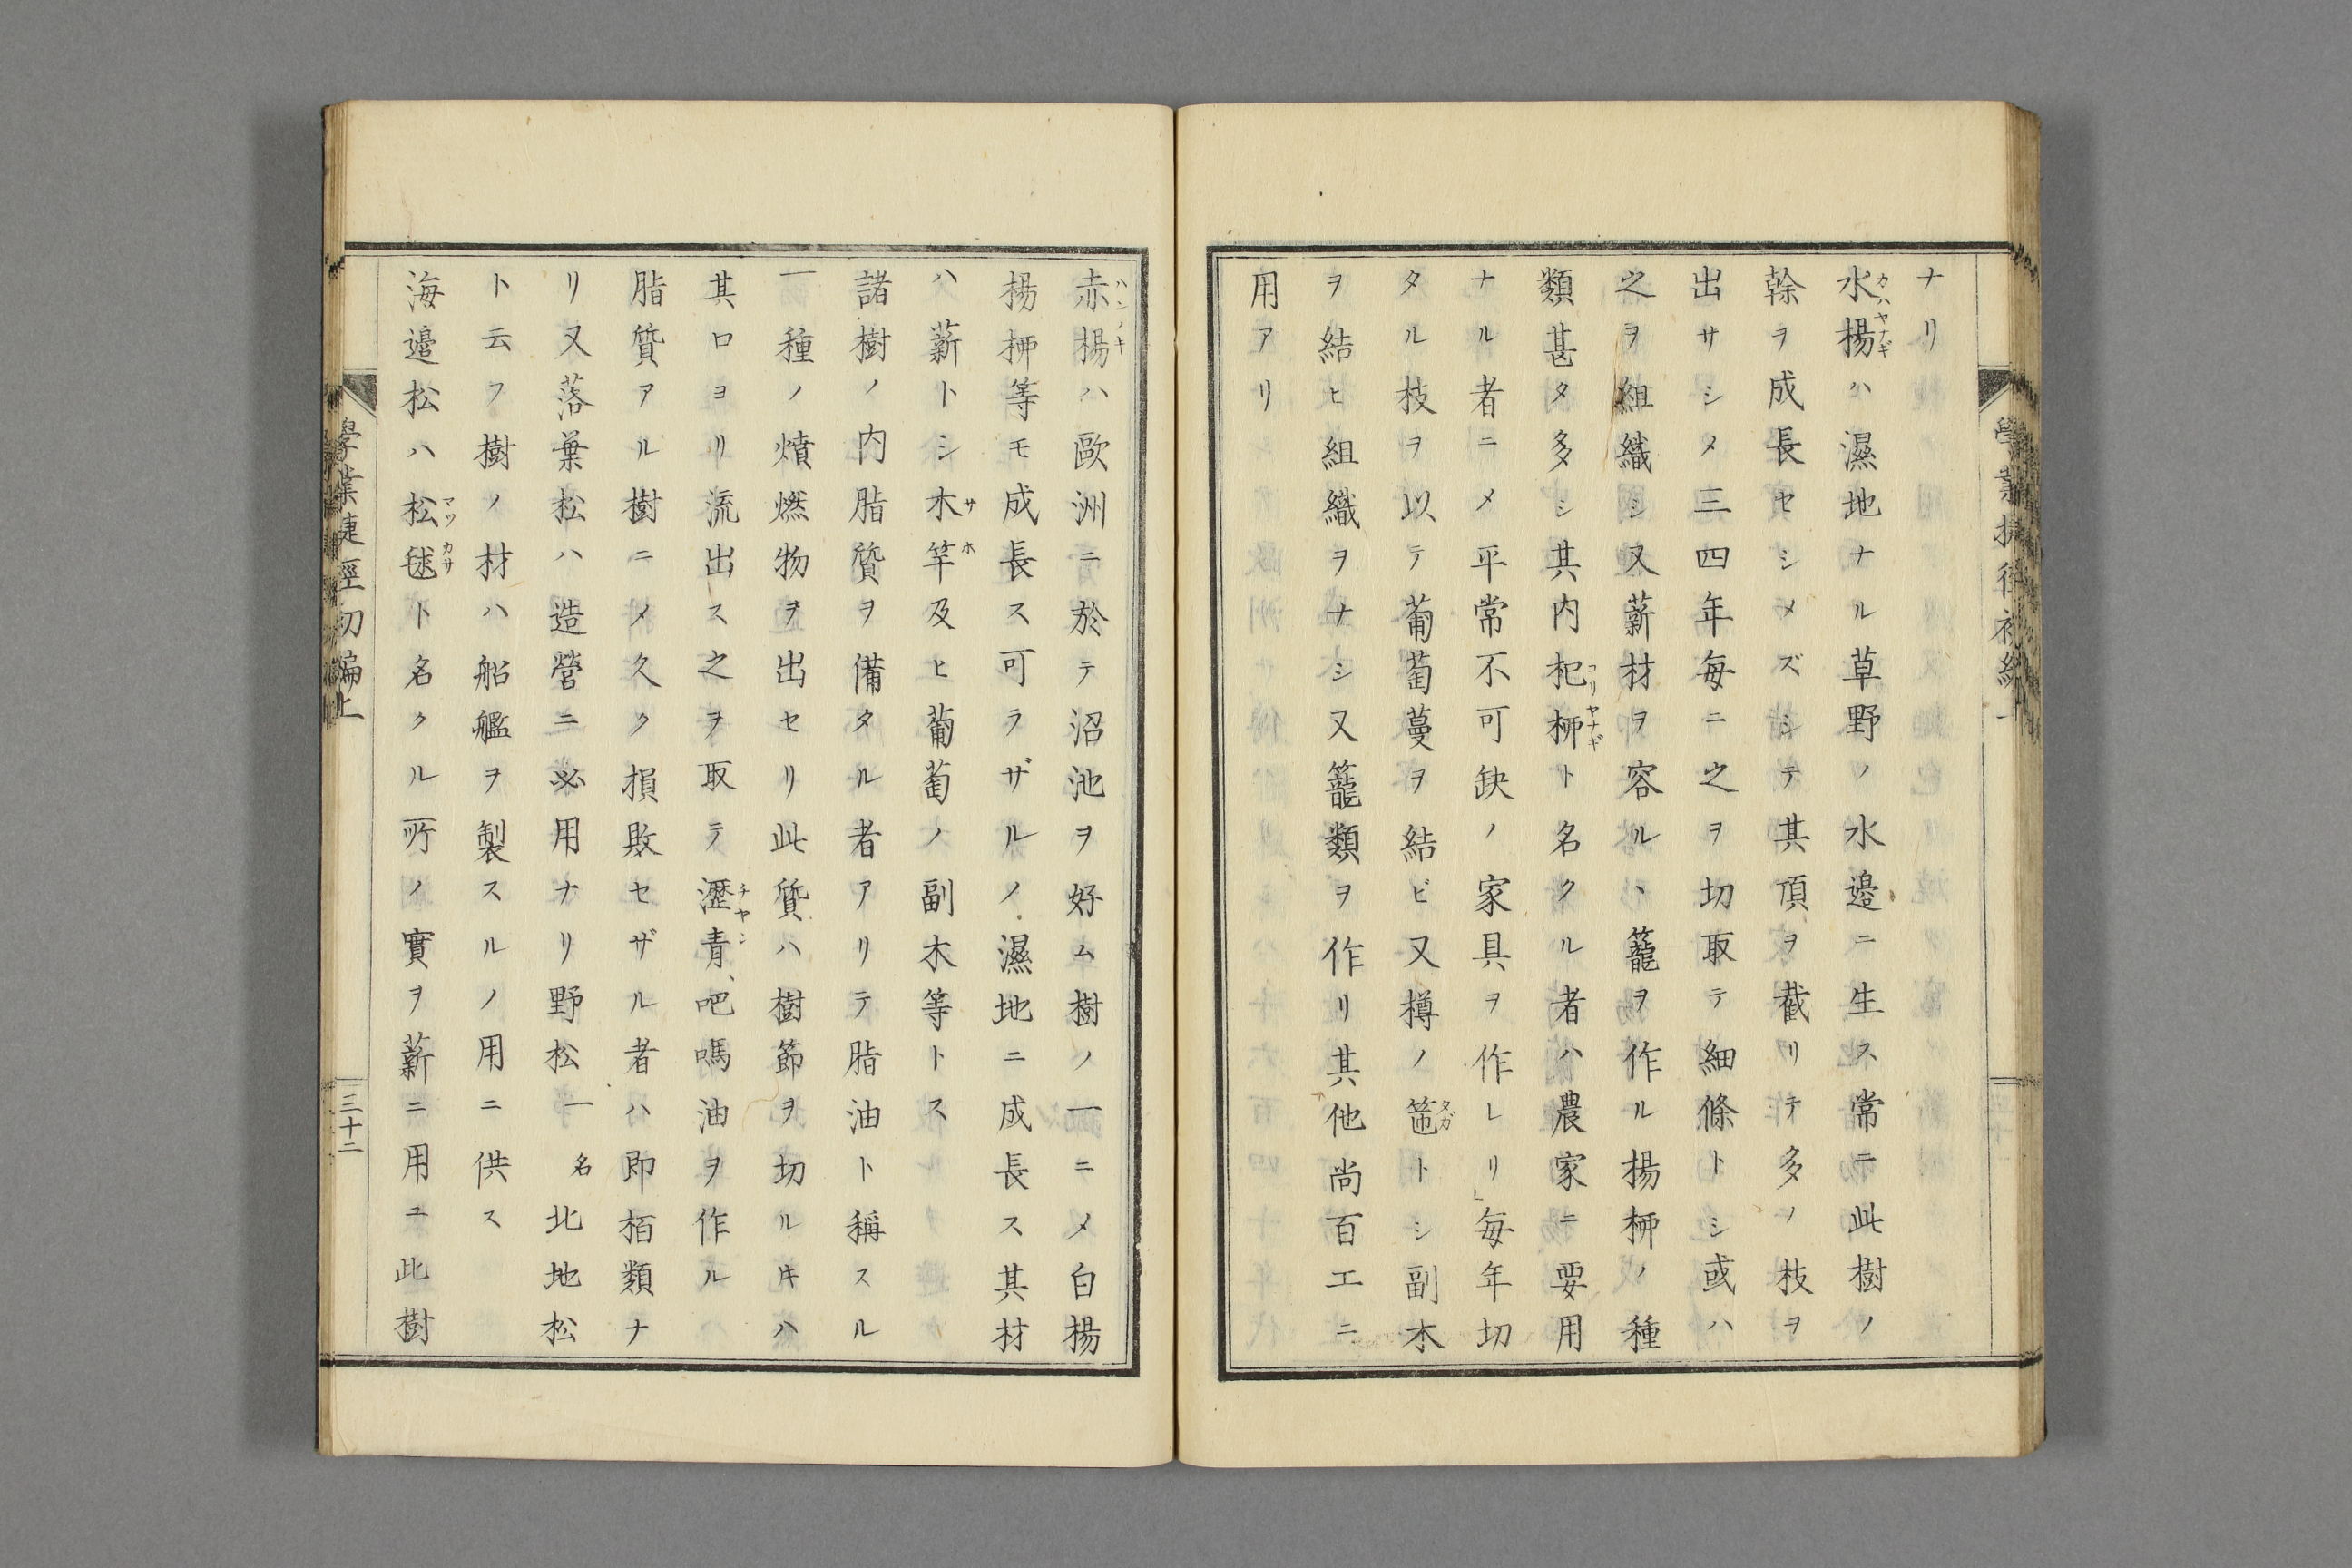 ナリ
水楊ハ濕地ナル草野ノ水邉ニ生ス常ニ此樹ノ
カハヤナギ
幹ヲ成長セシメズシテ其頂ヲ截リテ多ノ枝ヲ
出サシメ三四年毎ニ之ヲ切取テ細條トシ或ハ
之ヲ組織シ又薪材ヲ容ル丶籠ヲ作ル楊柳ノ種
類甚タ多シ其内杞柳ト名クル者ハ農家ニ要用
コリヤナギ
ナル者ニメ平常不可缺ノ家具ヲ作レリ」毎年切
タル枝ヲ以テ葡萄蔓ヲ結ビ又樽ノ箍トシ副木
タガ
ヲ結ヒ組織ヲナシ又籠類ヲ作リ其他尚百工ニ
用アリ
赤楊ハ歐洲ニ於テ沼池ヲ好ム樹ノ一ニメ白楊
ハンノキ
楊柳等モ成長ス可ラザルノ濕地ニ成長ス其材
ハ薪トシ木竿及ヒ葡萄ノ副木等トス
サホ
諸樹ノ内脂質ヲ備タル者アリテ脂油ト稱スル
一種ノ燌燃物ヲ出セリ此質ハ樹節ヲ切ルキハ
其口ヨリ流出ス之ヲ取テ瀝青、吧嗎油ヲ作ル
チヤン
脂質アル樹ニメ久ク損敗セザル者ハ即栢類ナ
リ又落葉松ハ造營ニ必用ナリ野松一名北地松
ト云フ樹ノ材ハ船艦ヲ製スルノ用ニ供ス
海邉松ハ松毬ト名クル所ノ實ヲ薪ニ用ユ此樹
マツカサ
學業捷徑初編上
三十二